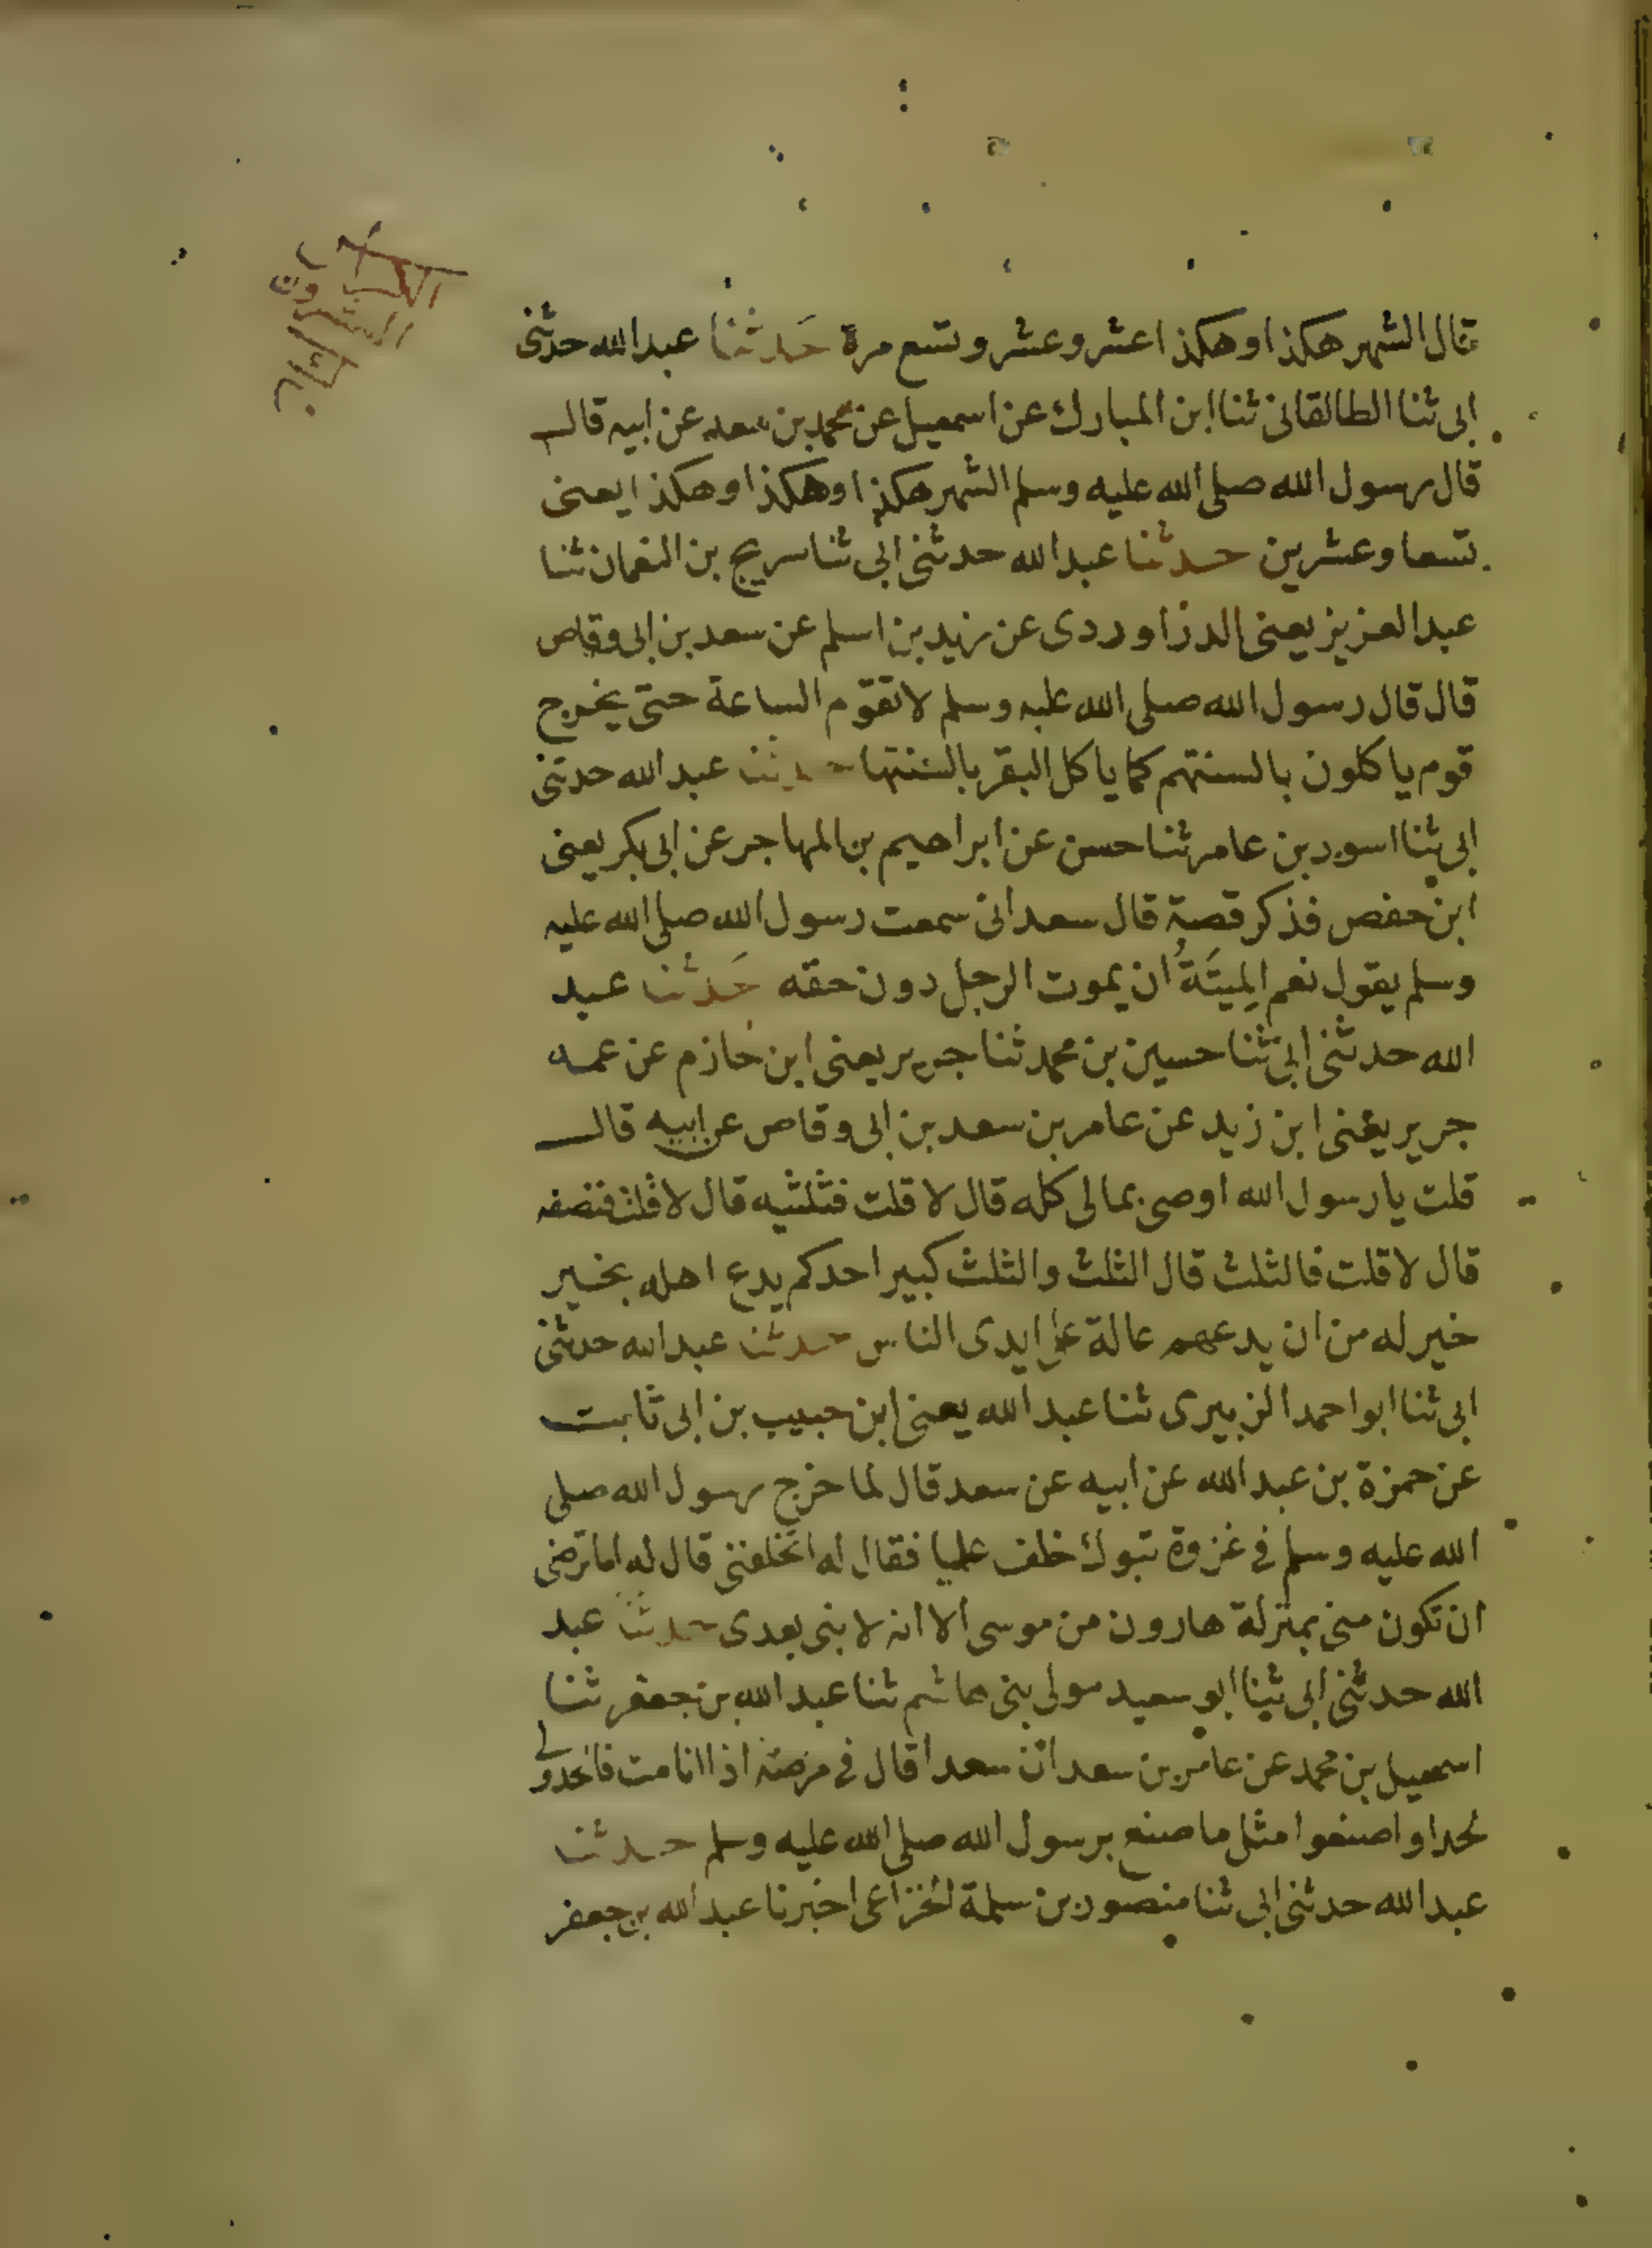 الكراس
العشرون
قال الشهر هكذا وهكذا عشر وعشر وتسع مرة حدثنا عبد الله حدثنى
ابى ثنا الطالقانى ثنا ابن المبارك عن اسمعيل عن محمد بن سعد عن ابيه قال
قال رسول الله صلى الله عليه وسلم الشهر هكذا وهكذا وهكذا يعنى
تسعا وعشرين حدثنا عبد الله حدثنى ابى ثنا سريج بن النعمان ثنا
عبد العزيز يعنى الدراوردى عن زيد بن اسلم عن سعد بن ابى وقاص
قال قال رسول الله صلى الله عليه وسلم لا تقوم الساعة حتى يخرج
قوم ياكلون بالسنتهم كما ياكل البقر بالسنتها حدثنا عبد الله حدثنى
ابى ثنا اسود بن عامر ثنا حسن عن ابراهيم بن المهاجر عن ابى بكر يعنى
ابن حفص فذكر قصة قال سعد انى سمعت رسول الله صلى الله عليه
وسلم يقول نعم الميتَةُ ان يموت الرجل دون حقه حَدثنا عبد
الله حدثنى ابى ثنا حسين بن محمد ثنا جرير يعنى ابن حازم عن عمه
جرير يعنى ابن زيد عن عامر بن سعد بن ابى وقاص عن ابيه قال
قلت يا رسول الله اوصى بمالى كله قال لا قلت فثلثيه قال لا قلت فنصفه
قال لا قلت فالثلث قال الثلث والثلث كبير احدكم يدع اهله بخير
خير له من ان يدعهم عالة على ايدى الناس حدثنا عبد الله حدثنى
ابى ثنا ابو احمد الزبيرى ثنا عبد الله يعنى ابن حبيب بن ابى ثابت
عن حمزة بن عبد الله عن ابيه عن سعد قال لما خرج رسول الله صلى
الله عليه وسلم فى غزوة تبوك خلف عليا فقال له اتخلفنى قال له اما ترضى
ان تكون منى بمنزلة هارون من موسى الا انه لا نبى بعدى حدثنا عبد
الله حدثنى ابى ثنا ابو سعيد مولى بنى هاشم ثنا عبد الله بن جعفر ثنا
اسمعيل بن محمد عن عامر بن سعد ان سعدا قال فى مرضه اذا انا مت فالحدوا لى
لحدا واصنعوا مثل ما صنع برسول الله صلى الله عليه وسلم حدثنا
عبد الله حدثنى ابى ثنا منصور بن سلمة الخزاعى اخبرنا عبد الله بن جعفر